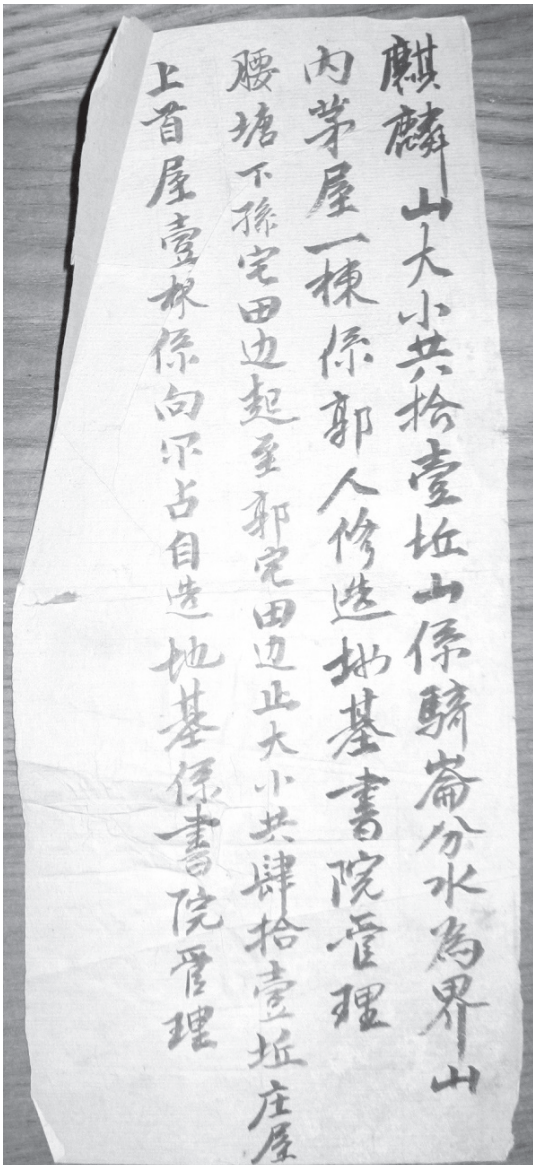 麒麟山大小共拾壹坵山係騎崙分水為界山
内茅屋一棟係郭人修造地基書院管理
腰塘下孫宅田边起至郭宅田边止大小共肆拾壹坵庄屋
上首屋壹棟係向尔占自造地基係書院管理